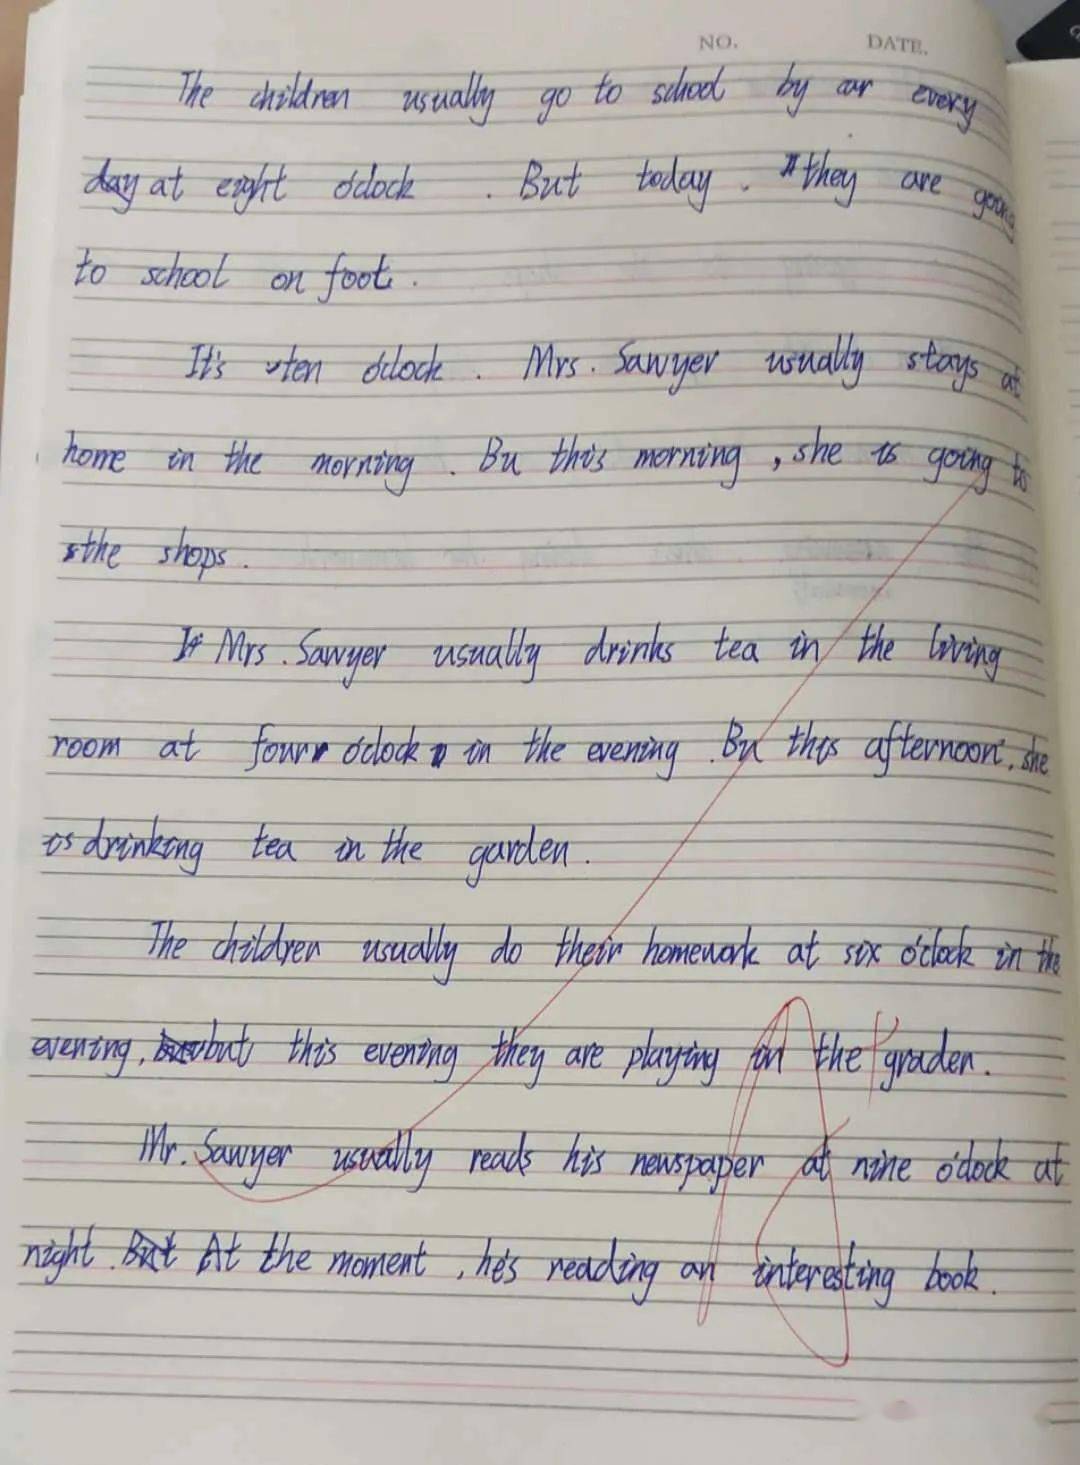 NO. DATE.
The children usually go to school by car every
day at eight o'clock . But today . they are going
to school on foot .
It's ten o'clock . Mrs . Sawyer usually stays at
home in the morning . Bu this morning , she is going to
the shops .
Mrs . Sawyer usually drinks tea in the living
room at four o'clock in the evening . Bu this afternoon , she
is drinking tea in the garden .
The children usually do their homework at six o'clock in the
evening , but this evening they are playing in the graden .
Mr . Sawyer usually reads his newspaper at nine o'clock at
night . At the moment , he's reading an interesting book .